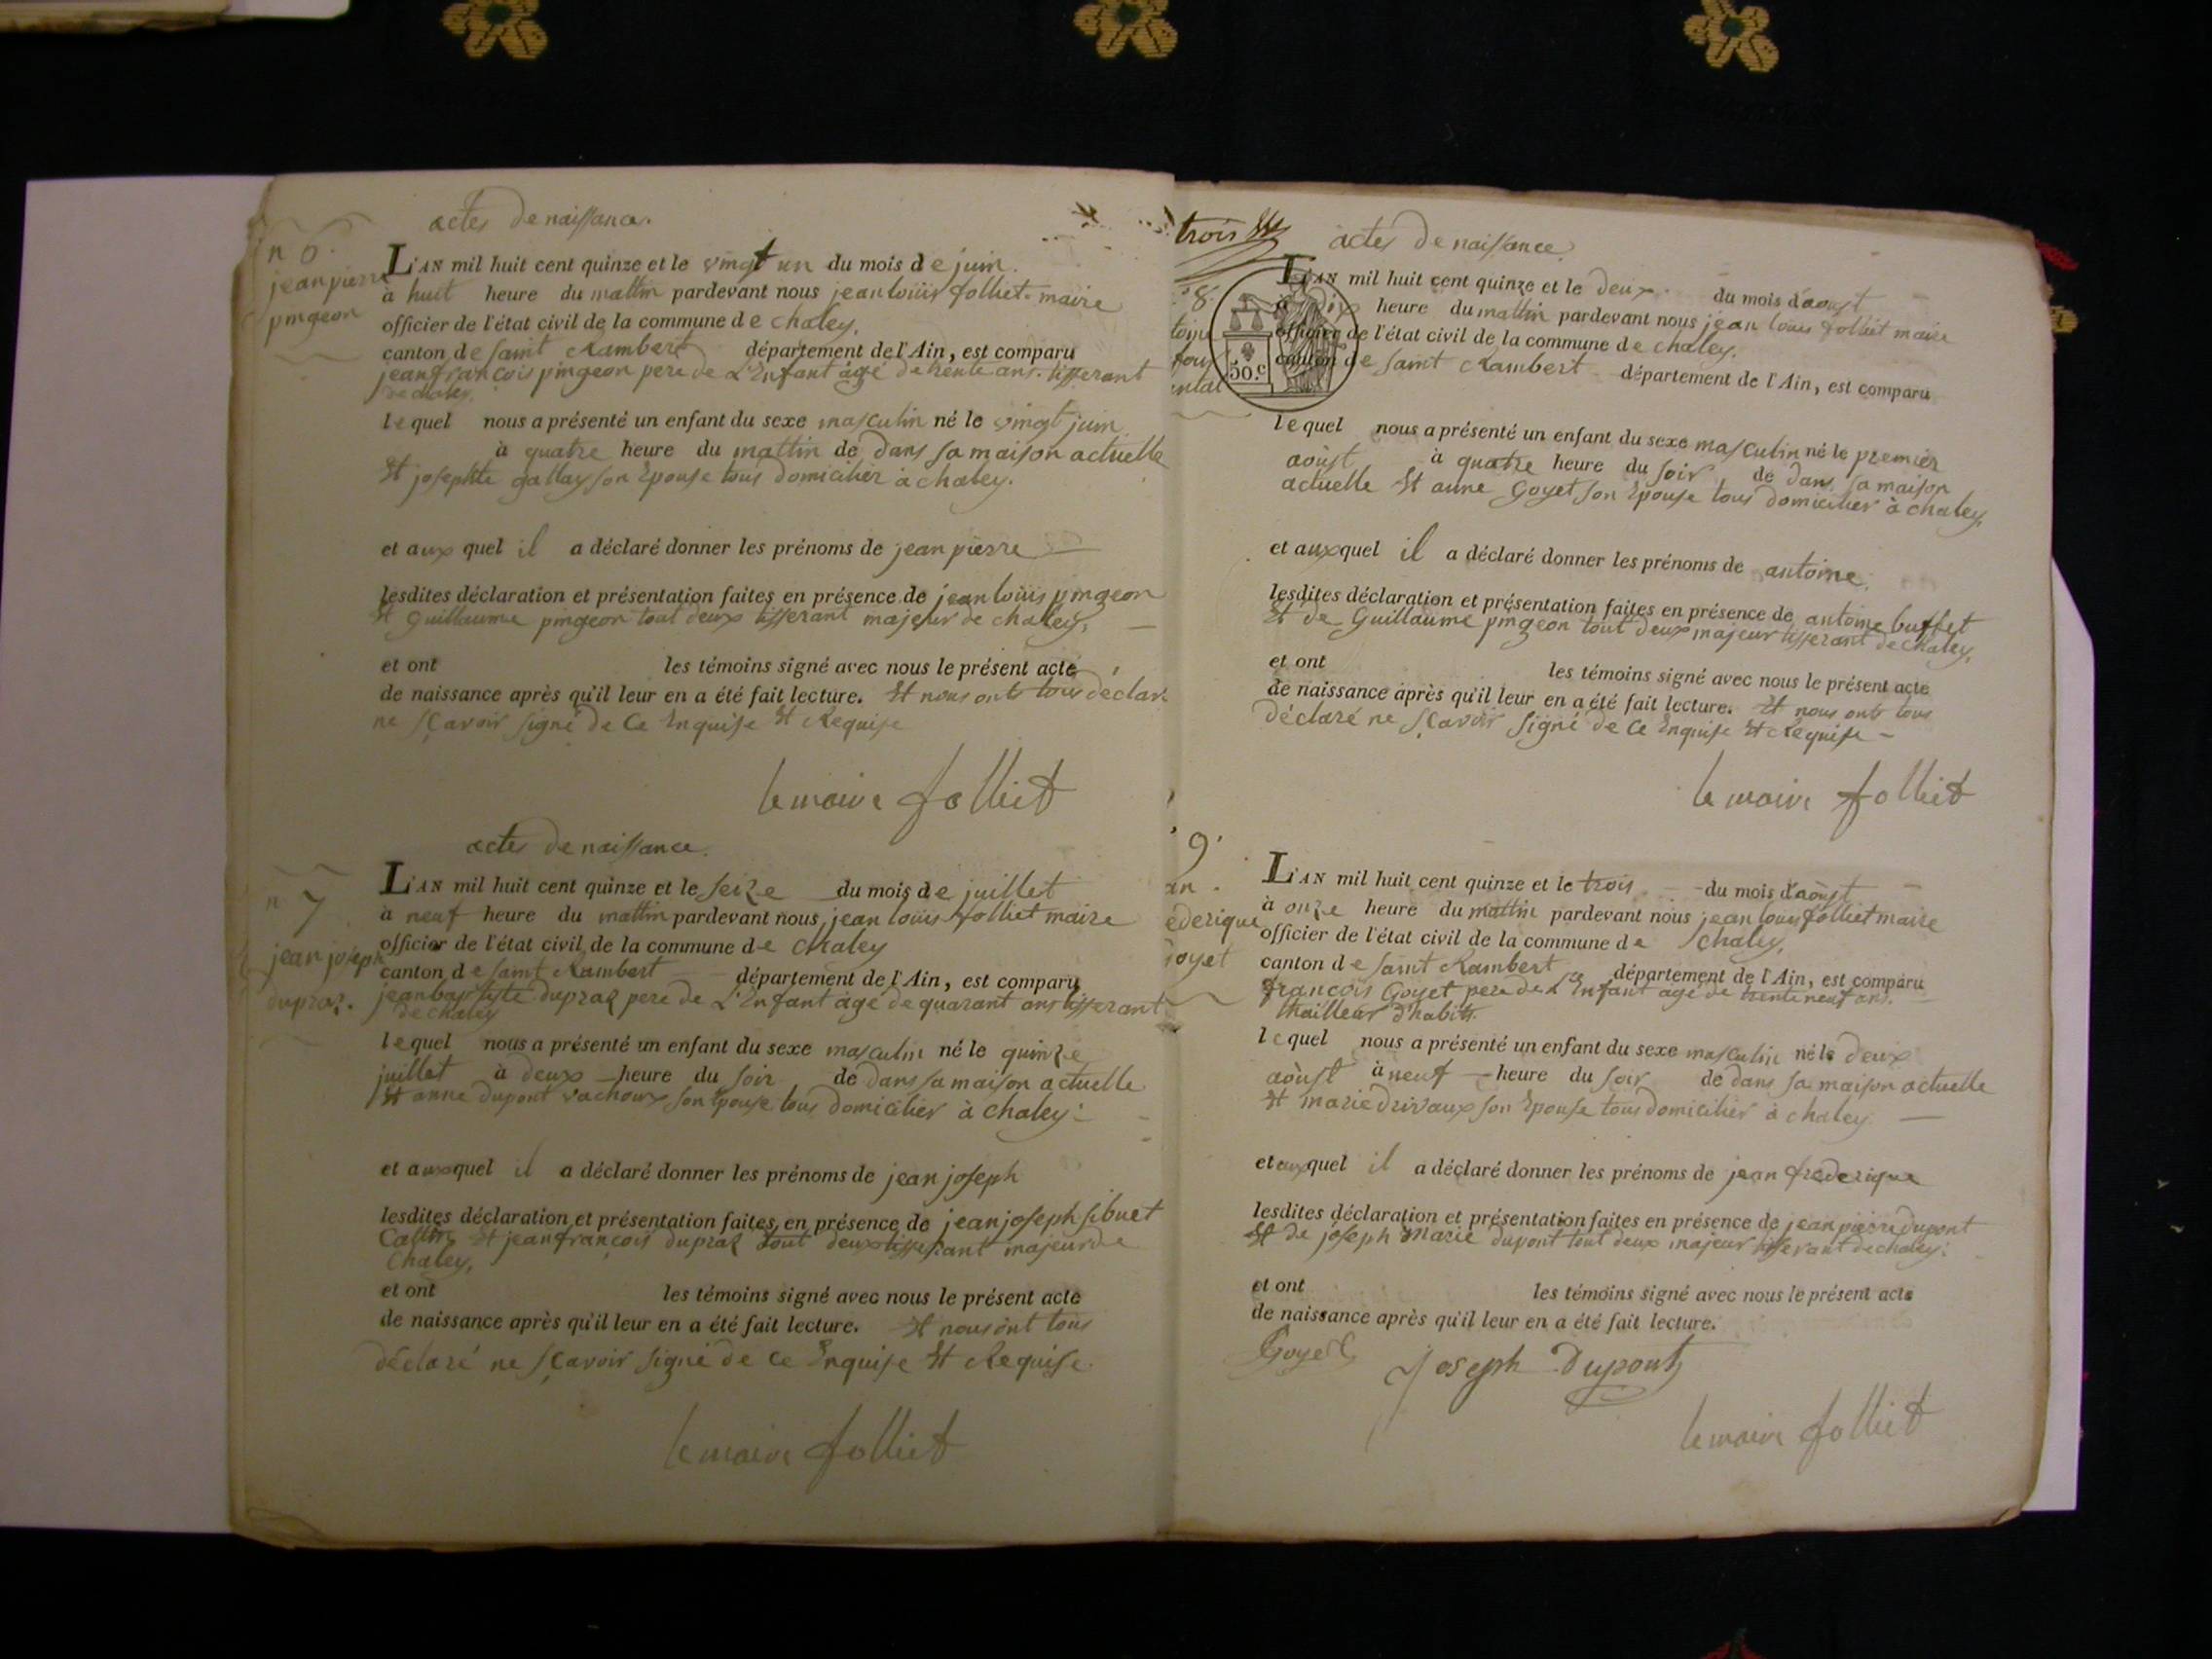 actes de naissance.
n 6.
jean pierre
pingeon
L'AN mil huit cent quinze et le vingt un du mois de juin.
à huit heure du mattin pardevant nous jean louis folliet maire
officier de l'état civil de la commune de chaley.
canton de saint Rambert département de l'Ain, est comparu
jean françois pingeon pere de L'Enfant âgé de trente ans. tisserant
de chaley.
lequel nous a présenté un enfant du sexe masculin né le vingt juin
à quatre heure du mattin de dans sa maison actuelle
Et josephte gallay son Epouse tous domicilier à chaley.
et aux quel il a déclaré donner les prénoms de jean pierre
lesdites déclaration et présentation faites en présence de jean louis pingeon
Et Guillaume pingeon tout deux tisserant majeur de chaley,
et ont les témoins signé avec nous le présent acte
de naissance après qu'il leur en a été fait lecture. Et nous onts tous déclar
ne sçavoir signé de Ce Enquise Et Requise
le maire folliet
actes de naissance.
n 7
jean joseph
dupraz.
L'AN mil huit cent quinze et le seize du mois de juillet
à neuf heure du mattin pardevant nous jean louis folliet maire
officier de l'état civil de la commune de chaley
canton de saint Rambert département de l'Ain, est comparu
jean baptiste dupraz pere de L'Enfant âgé de quarant ans tisserant
de chaley
lequel nous a présenté un enfant du sexe masculin né le quinze
juillet à deux heure du soir de dans sa maison actuelle
Et anne dupont vachoux son Epouse tous domicilier à chaley.
et auxquel il a déclaré donner les prénoms de jean joseph
lesdites déclaration et présentation faites en présence de jean joseph sibuet
Et jean françois dupraz tout deux tisserant majeur de
Chaley,
et ont les témoins signé avec nous le présent acte
de naissance après qu'il leur en a été fait lecture. Et nous ont tous
déclaré ne sçavoir signé de Ce Enquise Et Requise.
le maire folliet
trois
actes de naissance.
8.
50.c
L'AN mil huit cent quinze et le deux du mois d'aoust
à dix heure du mattin pardevant nous jean louis folliet maire
officier de l'état civil de la commune de chaley.
canton de saint Rambert département de l'Ain, est comparu
lequel nous a présenté un enfant du sexe masculin né le premier
aoust à quatre heure du soir de dans sa maison
actuelle Et anne Goyet son Epouse tous domicilier à chaley,
et auxquel il a déclaré donner les prénoms de antoine.
lesdites déclaration et présentation faites en présence de antoine buffet
Et de Guillaume pingeon tout deux majeur tisserant de chaley,
et ont les témoins signé avec nous le présent acte
de naissance après qu'il leur en a été fait lecture. Et nous onts tous
déclaré ne sçavoir signé de Ce Enquise Et Requise
le maire folliet
9.
an
éderique
oyet
L'AN mil huit cent quinze et le trois du mois d'aoust
à onze heure du mattin pardevant nous jean louis folliet maire
officier de l'état civil de la commune de chaley.
canton de saint Rambert département de l'Ain, est comparu
françois Goyet pere de L'Enfant âgé de trente neuf ans.
thailleur d'habits.
lequel nous a présenté un enfant du sexe masculin né le deux
aoust à neuf heure du soir de dans sa maison actuelle
Et marie drivaux son Epouse tous domicilier à chaley
et auxquel il a déclaré donner les prénoms de jean frederique
lesdites déclaration et présentation faites en présence de jean pierre dupont
Et de joseph Marie dupont tout deux majeur tisserant de chaley.
et ont les témoins signé avec nous le présent acte
de naissance après qu'il leur en a été fait lecture.
Goyet Joseph Dupont
le maire folliet